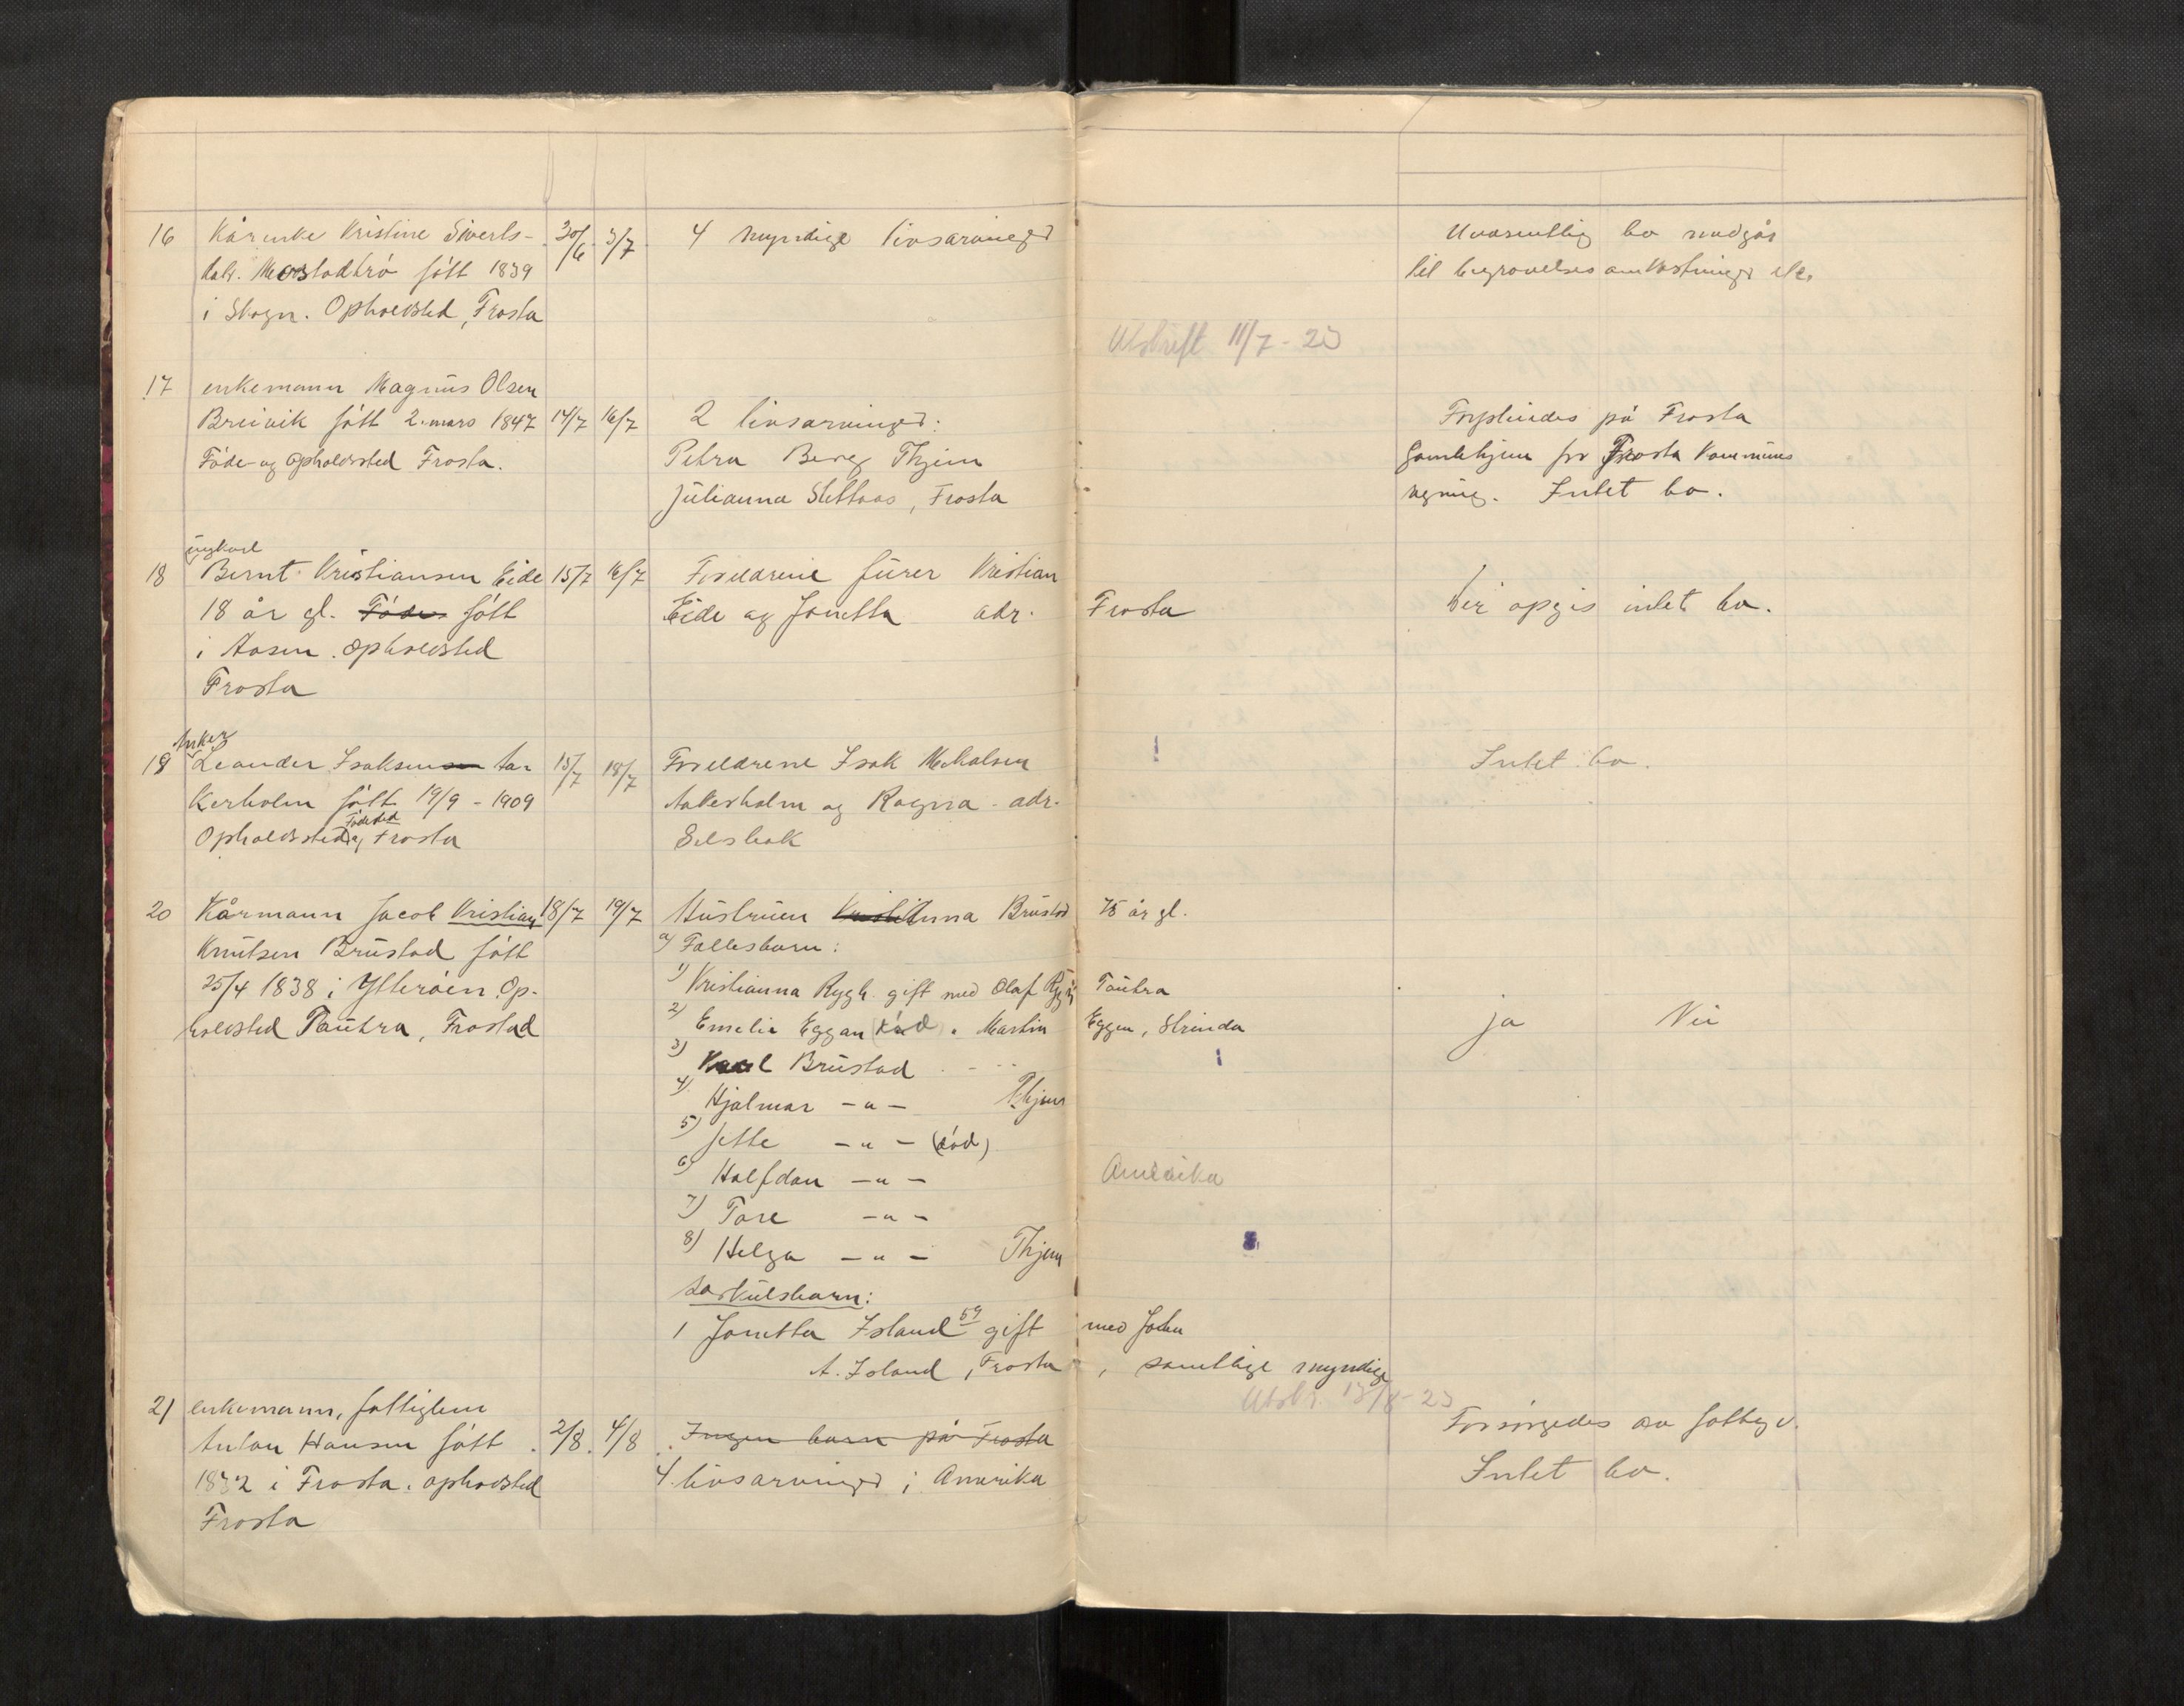 16 Kårenke Kristine Siverts- 30/6 3/7 4 myndige livsarvinger Uvæsentlig bo medgår
datr. Mostadtrø født 1839 til begravelsesomkostninger etc.
i Skogn. Opholdsted, Frosta
Utskrift 11/7-23
17 enkemann Magnus Olsen
Breivik født 2. mars 1847 14/7 16/7 2 livsarvinger: Forpleiedes på Frosta
Føde- og opholdssted Frosta. Petra Berg Thjem Gamlehjem for Frosta kommunes
Julianna Slettaas, Frosta regning. Intet bo.
ungkarl
18 Bernt Kristiansen Eide 15/7 16/7 Foreldrene furer Kristian
18 år gl. Føde født Eide og Jonetta adr. Frosta Der opgis intet bo.
i Aasen. opholdsted
Frosta
Anker
19 Leander Isaksen Aa- 15/7 18/7 Foreldrene Isak Mikalsen Intet bo.
kerholm født 19/9-1909 Aakerholm og Ragna - adr.
Fødested
Opholdssted og Frosta Selsbak
20 Kårmann Jacob Kristian 18/7 19/7 Hustruen Anna Brustad 75 år gl.
Knutsen Brustad født a) Fællesbarn:
25/4 1838 i Ytterøen. Op- 1) Kristianna Rygh gift med Olaf Rygh Tautra
holdsted Tautra, Frostad 2) Emelie Eggan (død) " Martin Eggen, Strinda ja Nei
3) Karl Brustad
4) Hjalmar -"- Thjem
5) Jette -"- (død)
6) Halfdan -"- Amerika
7) Tore -"-
8) Helga -"- Thjem
Særkulsbarn:
1 Jonetta Island 59 gift med John
A. Island, Frosta, samtlige myndige
Utskr. 13/8-23
21 enkemann, fattiglem Forsørgedes av fattigv.
Anton Hansen født 2/8. 4/8 Ingen barn på Frosta
1832 i Frosta. opholdsted 4 livsarvinger i Amerika Intet bo.
Frosta